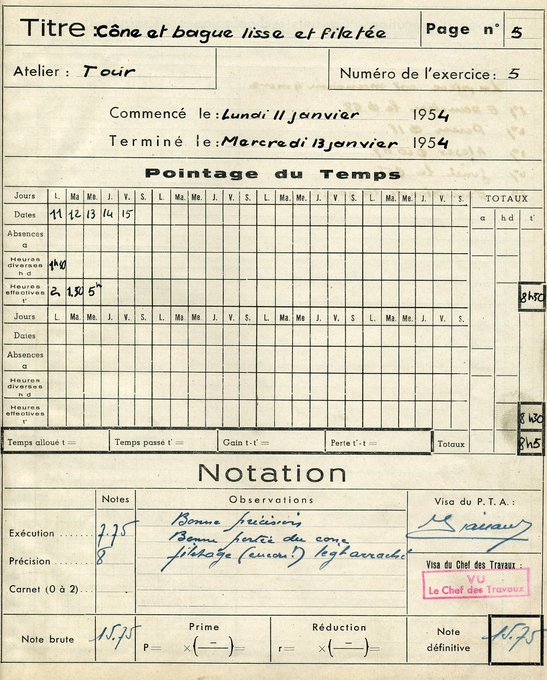 Titre : Cône et bague lisse et filetée Page n° 5
Atelier : Tour Numéro de l'exercice : 5
Commencé le : Lundi 11 janvier 1954
Terminé le : Mercredi 13 janvier 1954
Pointage du Temps
Jours L. Ma Me. J. V. S. L. Ma. Me. J. V. S. L. Ma. Me. J. V. S. L. Ma. Me. J. V. S. TOTAUX
Dates 11 12 13 14 15 a h d t'
Absences a
Heures diverses h d
Heures effectives t' 2 1.30 5h 8h30
Jours L. Ma. Me. J. V. S. L. Ma. Me. J. V. S. L. Ma. Me. J. V. S. L. Ma. Me. J. V. S.
Dates
Absences a
Heures diverses h d
Heures effectives t' 8h30
Temps alloué t = Temps passé t' = Gain t-t' = Perte t'-t = Totaux 8h5
Notation
Notes Observations Visa du P. T. A. :
Bonne précision
Exécution 7.75 Bonne portée du cone
Précision 8 filetage (encore!)
Visa du Chef des Travaux :
VU
Le Chef des Travaux
Carnet (0 à 2)
Note brute 15.75 Prime Réduction Note définitive 15.75
P= ×(—) r= ×(—)